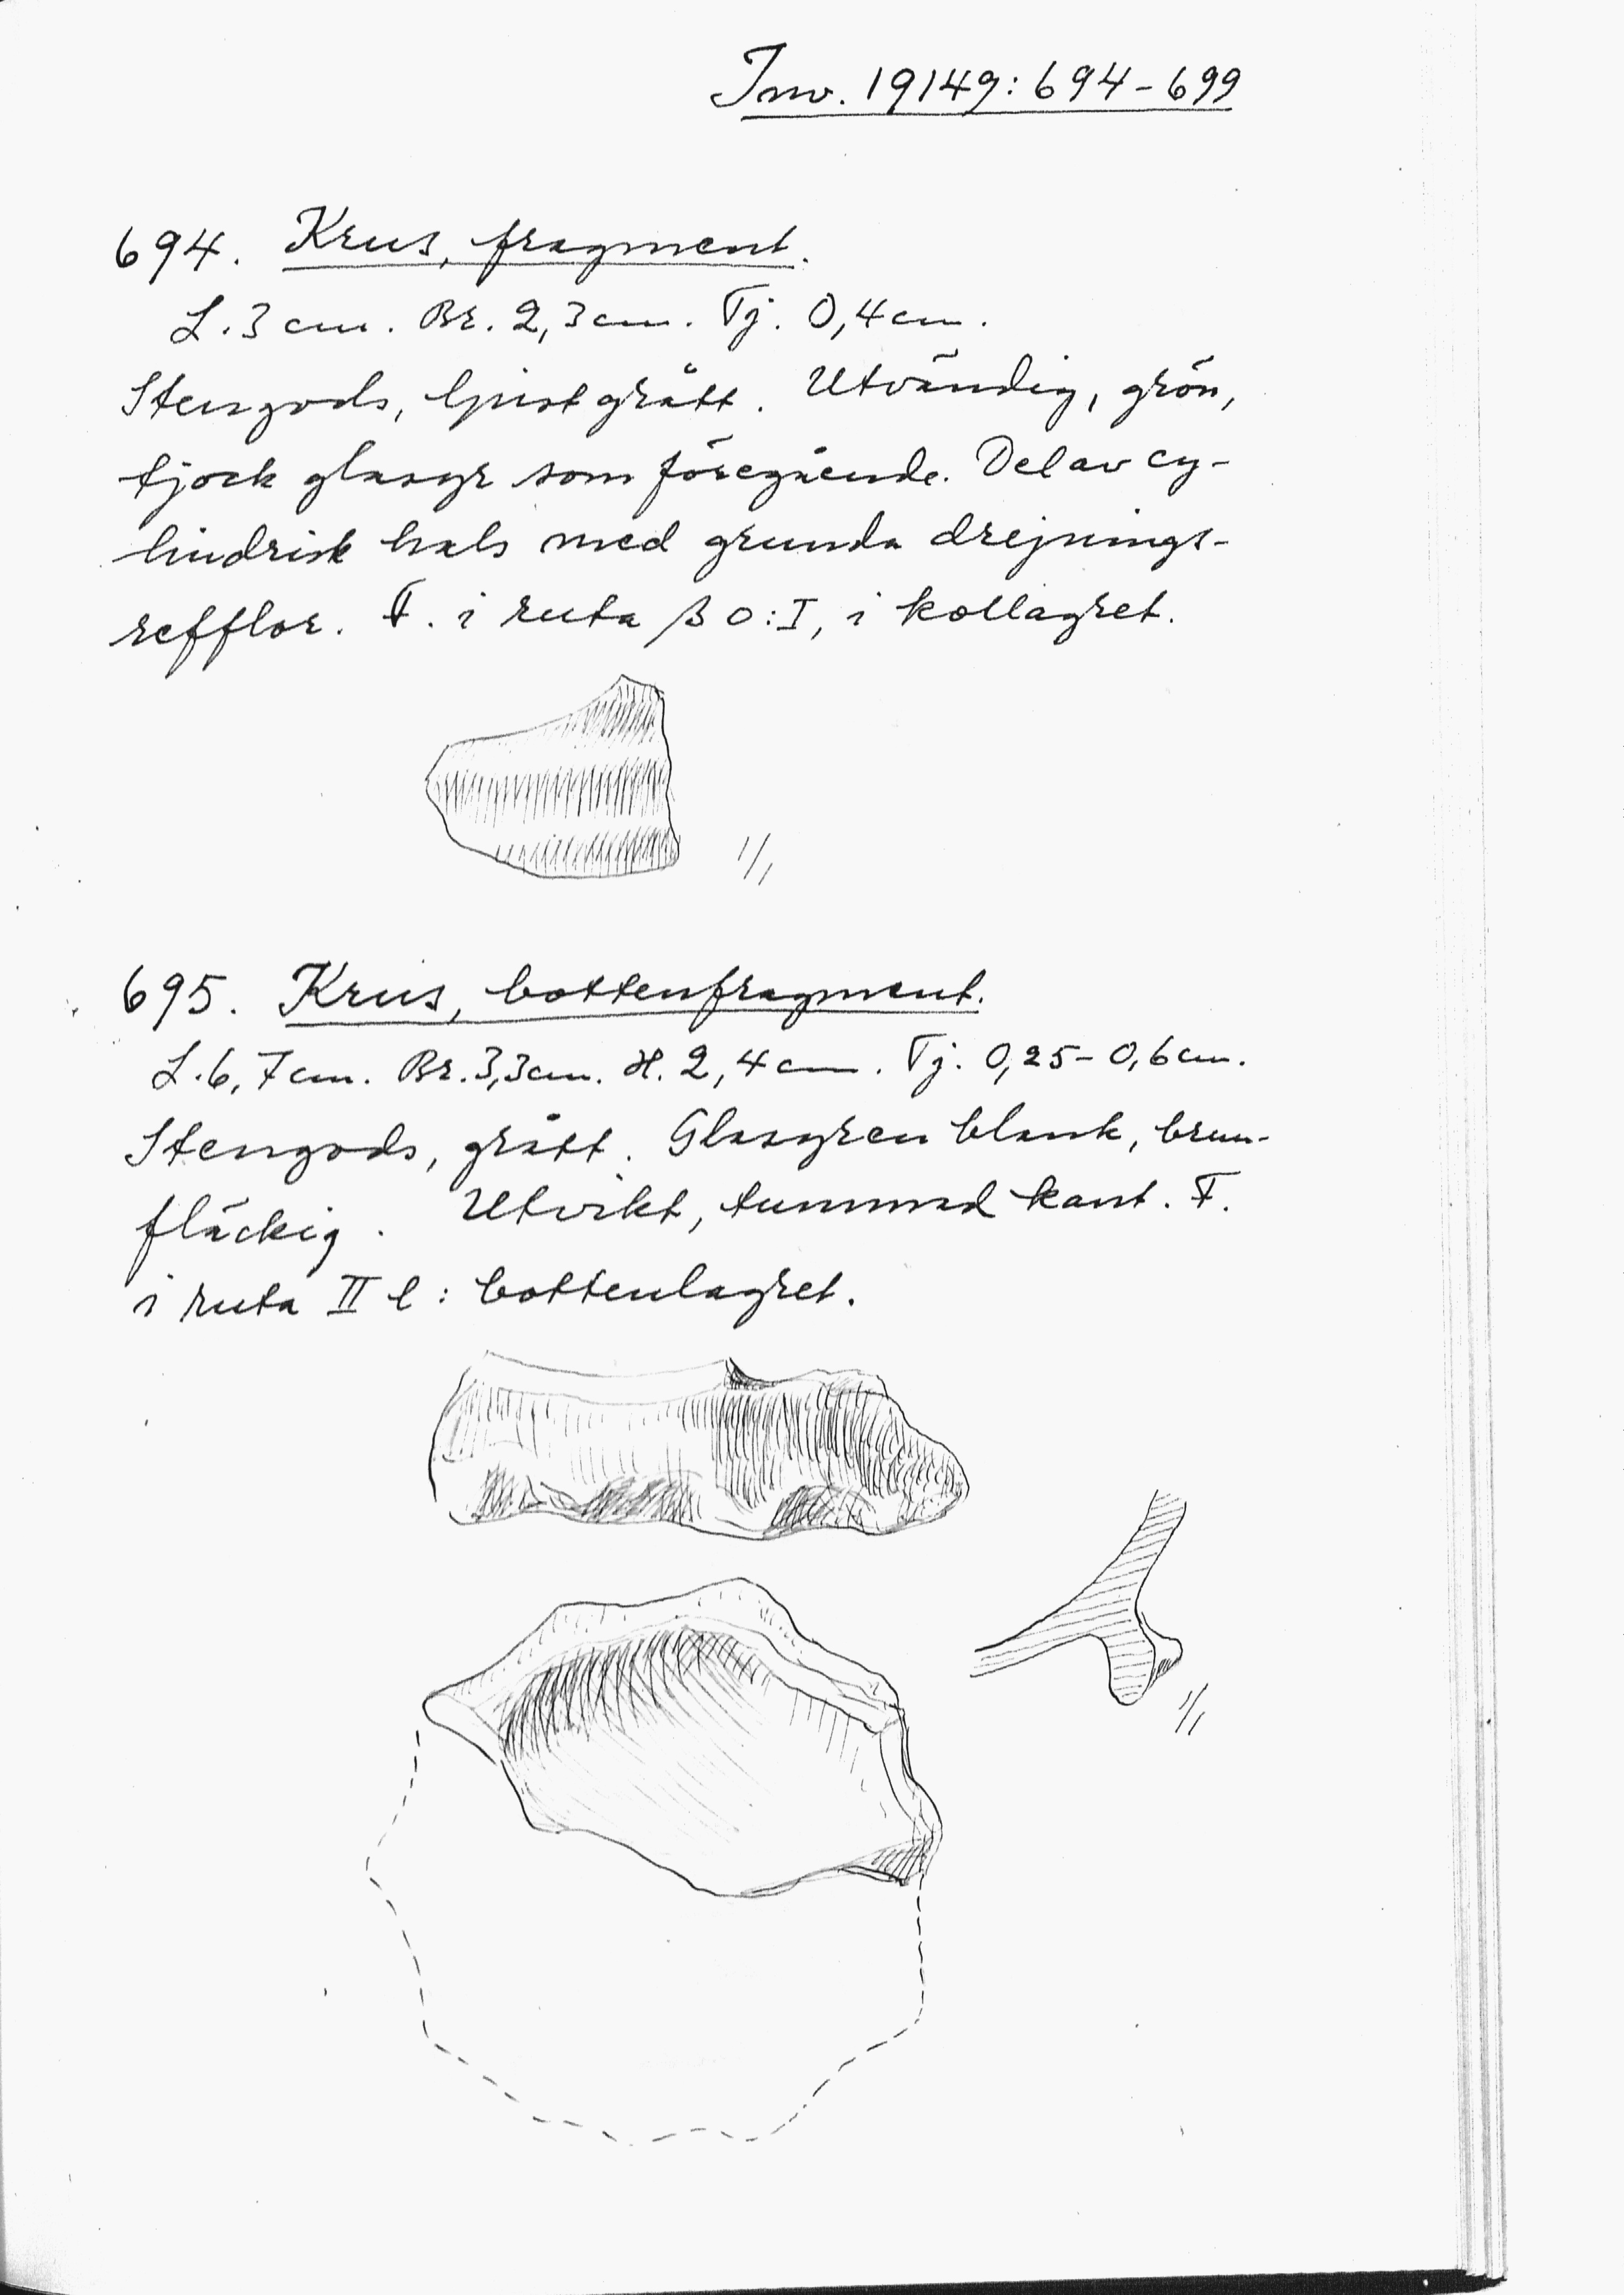 Inv. 19149:694-699
694. Krus, fragment.
L. 3 cm. Br. 2,3 cm. Tj. 0,4 cm.
Stengods, ljust grått. Utvändig, grön,
tjock glasyr som föregående. Del av cy-
lindrisk hals med grunda drejnings-
refflor. F. i ruta β 0:I, i kollagret.
1/1
695. Krus, bottenfragment.
L. 6,7 cm. Br. 3,3 cm. H. 2,4 cm. Tj. 0,25-0,6 cm.
Stengods, grått. Glasyren blank, brun-
fläckig. Utvikt, tummad kant. F.
i ruta II l: bottenlagret.
1/1